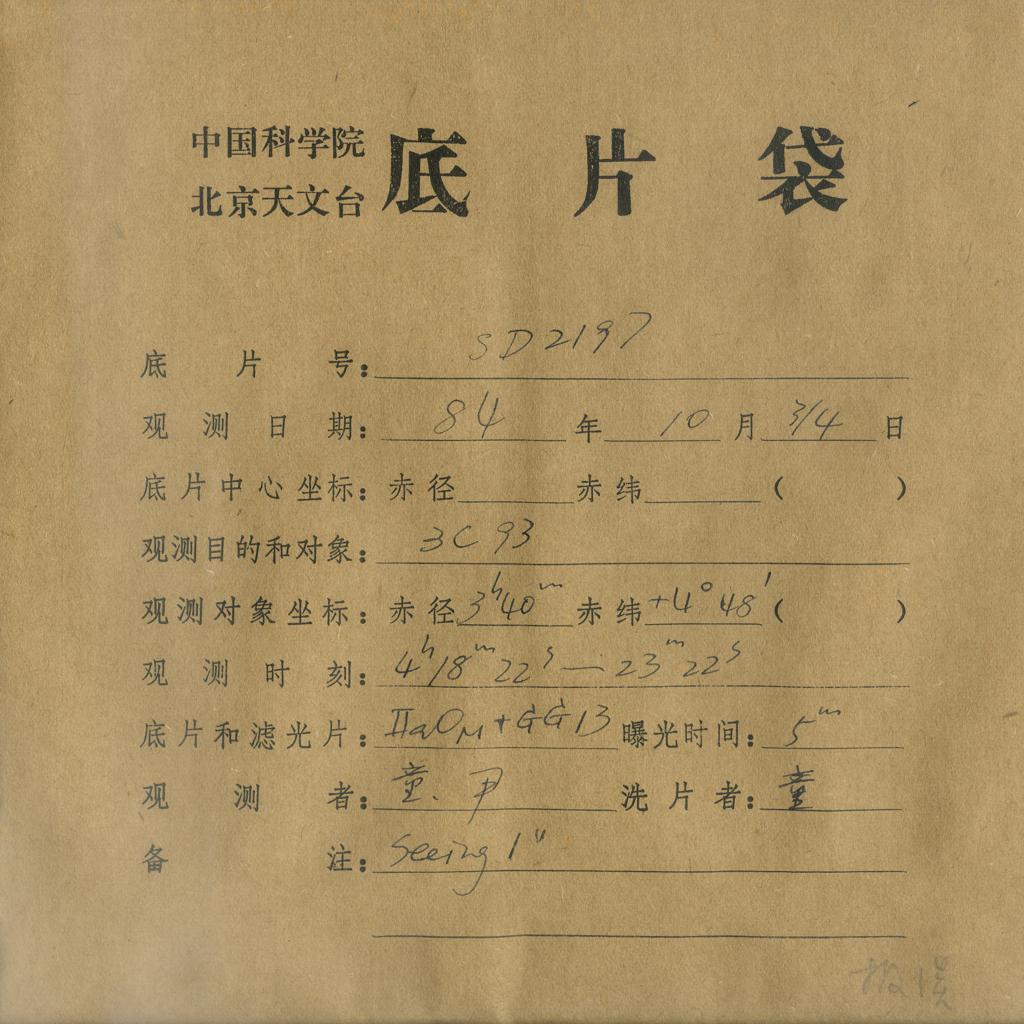 中国科学院
北京天文台
底片袋
底片号：SD2197
观测日期：84年10月3/4日
底片中心坐标：赤径 赤纬 （ ）
观测目的和对象：3C93
观测对象坐标：赤径3ʰ40ᵐ 赤纬+4°48′（ ）
观测时刻：4ʰ18ᵐ22ˢ—23ᵐ22ˢ
底片和滤光片：ⅡaOM+GG13 曝光时间：5ᵐ
观测者：童.尹 洗片者：童
备注：Seeing 1"
报误